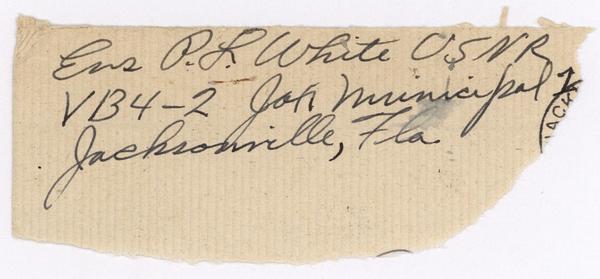 Ens P.L. White USNR
VB4-2 Jax Municipal
Jacksonville, Fla
JACK